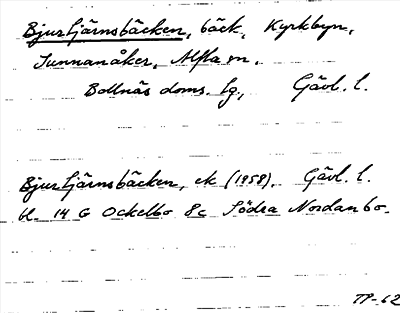 Bjurtjärnsbäcken, bäck, Kyrkbyn,
Sunnanåker, Alfta sn.
Bollnäs doms. lg., Gävl. l.
Bjurtjärnsbäcken, ek (1958). Gävl. l.
bl. 14 G Ockelbo 8c Södra Nordanbo.
TP-62